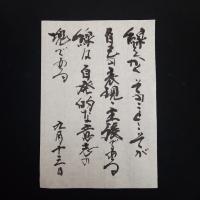 線をひく そのことこそが
自己の表現、主張である
線は自発的な意志の
塊である
九月十三日